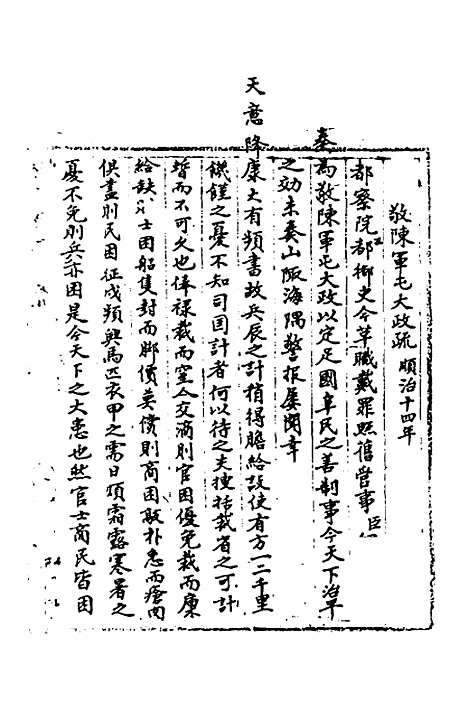 敬陳軍屯大政疏 順治十四年
都察院左都御史今革職戴罪照舊管事臣
奏為敬陳軍屯大政以定足國阜民之善制事今天下治平
之効未奏山陬海隅警報屡聞幸
天意降康大有頻書故兵辰之計稍得贍給設使有方一二千里
饑饉之憂不知司国計者何以待之夫搜括裁省之可計
暫而不可久也俸禄裁而室人交謫則官困優免裁而廩
給缺則士困船隻封而脚價莫償則商困敲朴急而瘡肉
俱盡則民困征戍頻興馬匹衣甲之需日煩霜露寒暑之
憂不免則兵亦困是今天下之大患也然官士商民皆困